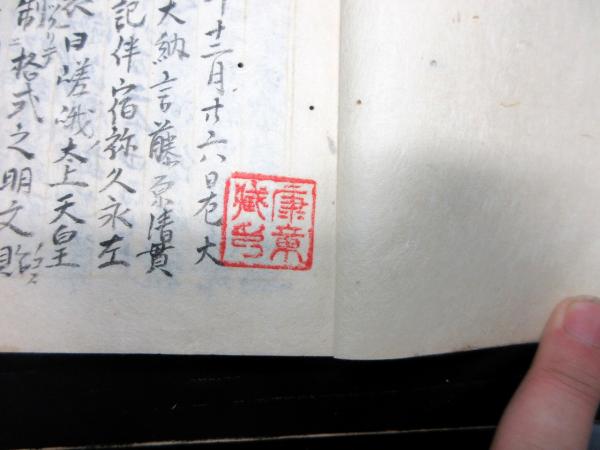 十二月廿六日左大
大納言藤原清貫
記伴宿祢久永左
日嵯峨太上天皇
制ニ格式之明文
康章
蔵印